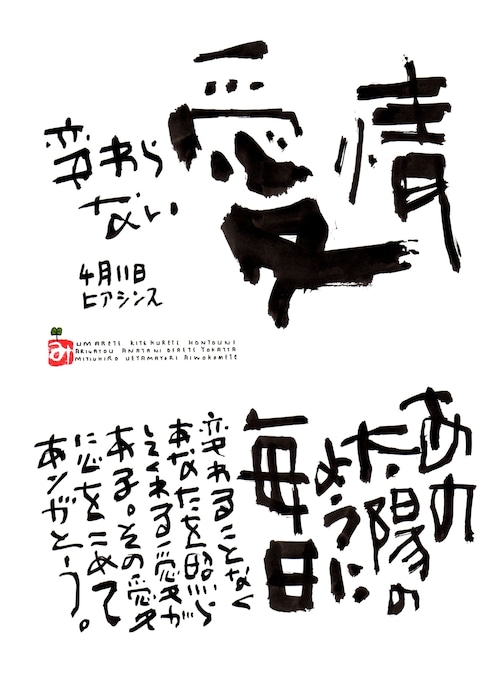 変わら
ない
愛情
4月11日
ヒアシンス
み
UMARETE KITEKURETE HONTOUNI
ARIGATOU ANATANI DEAETE YOKATTA
MITIUHIRO UEYAMAYORI AIWOKOMETE
あの
太陽の
ように
毎日
変わることなく
あなたを照らし
してくれる愛が
ある。その愛
に心をこめて
ありがとう。